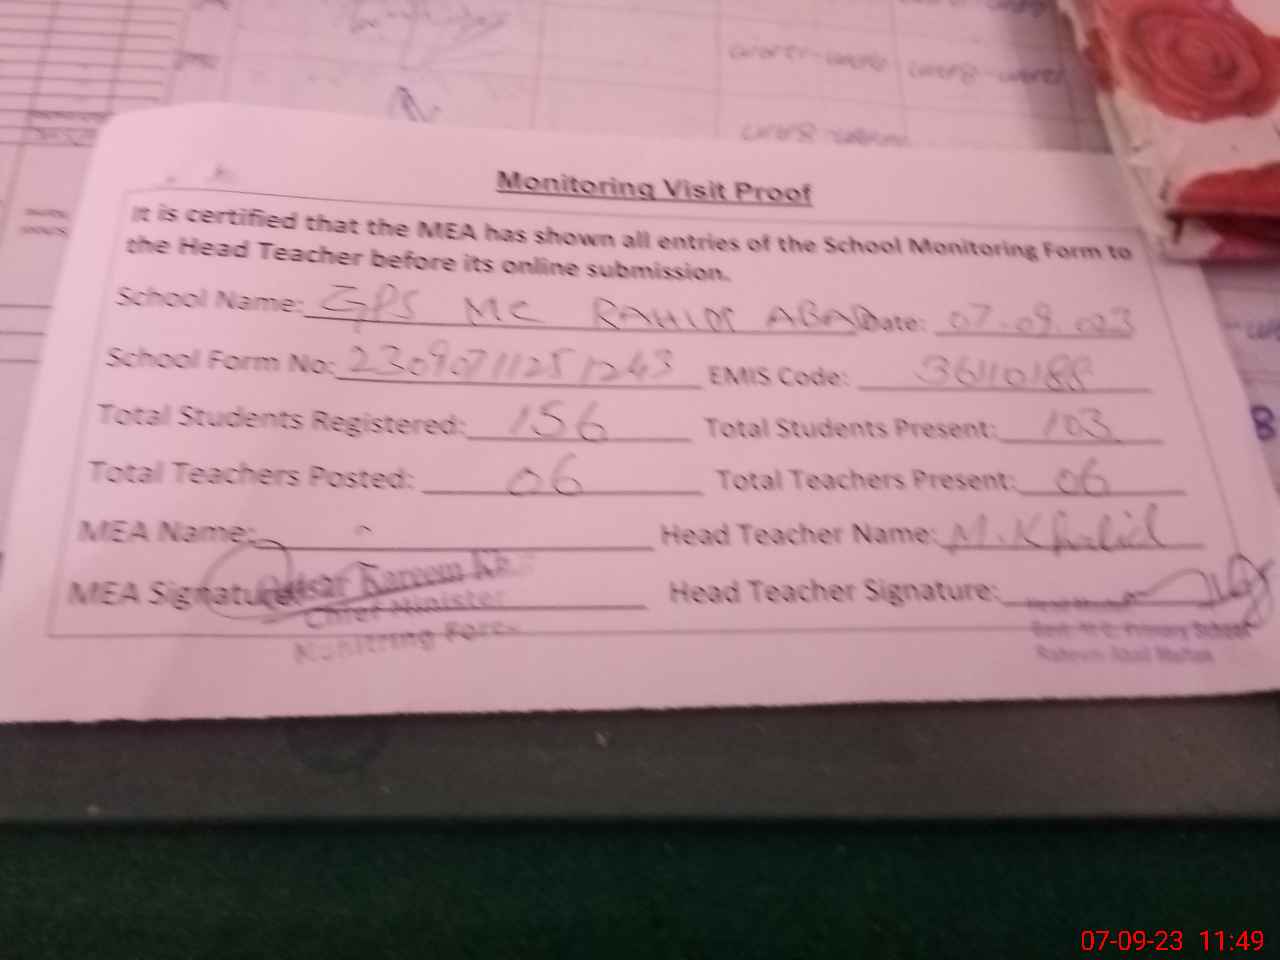 Monitoring Visit Proof
It is certified that the MEA has shown all entries of the School Monitoring Form to
the Head Teacher before its online submission.
School Name: GPS MC RAHIM ABAD Date: 07.09.023
School Form No: 23090711251243 EMIS Code: 36110188
Total Students Registered: 156 Total Students Present: 103
Total Teachers Posted: 06 Total Teachers Present: 06
MEA Name: Head Teacher Name: M. Khalid
MEA Signature: Kareem Head Teacher Signature:
Chief Minister
Primary School
07-09-23 11:49